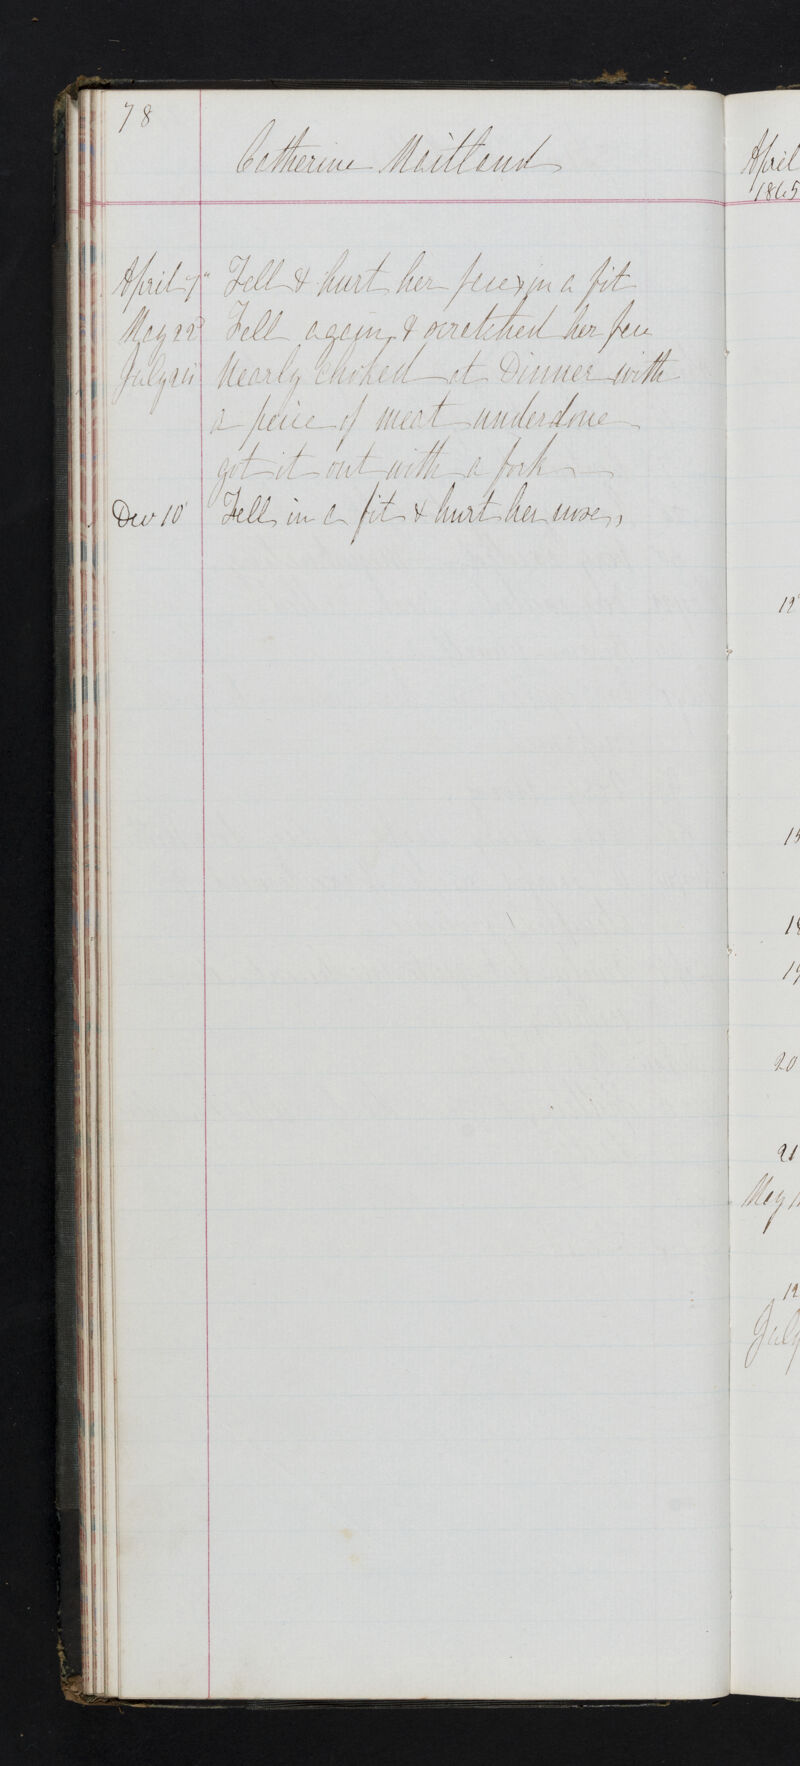 78
Catherine Maitland
April 7" Fell & hurt her face in a fit
May 22 Fell again & scratched her face
July Nearly choked at Dinner with
a peice of meat underdone
got it out with a fork
Dec 10 Fell in a fit & hurt her nose,
April
1865
12
15
18
19
20
21
May
12
July